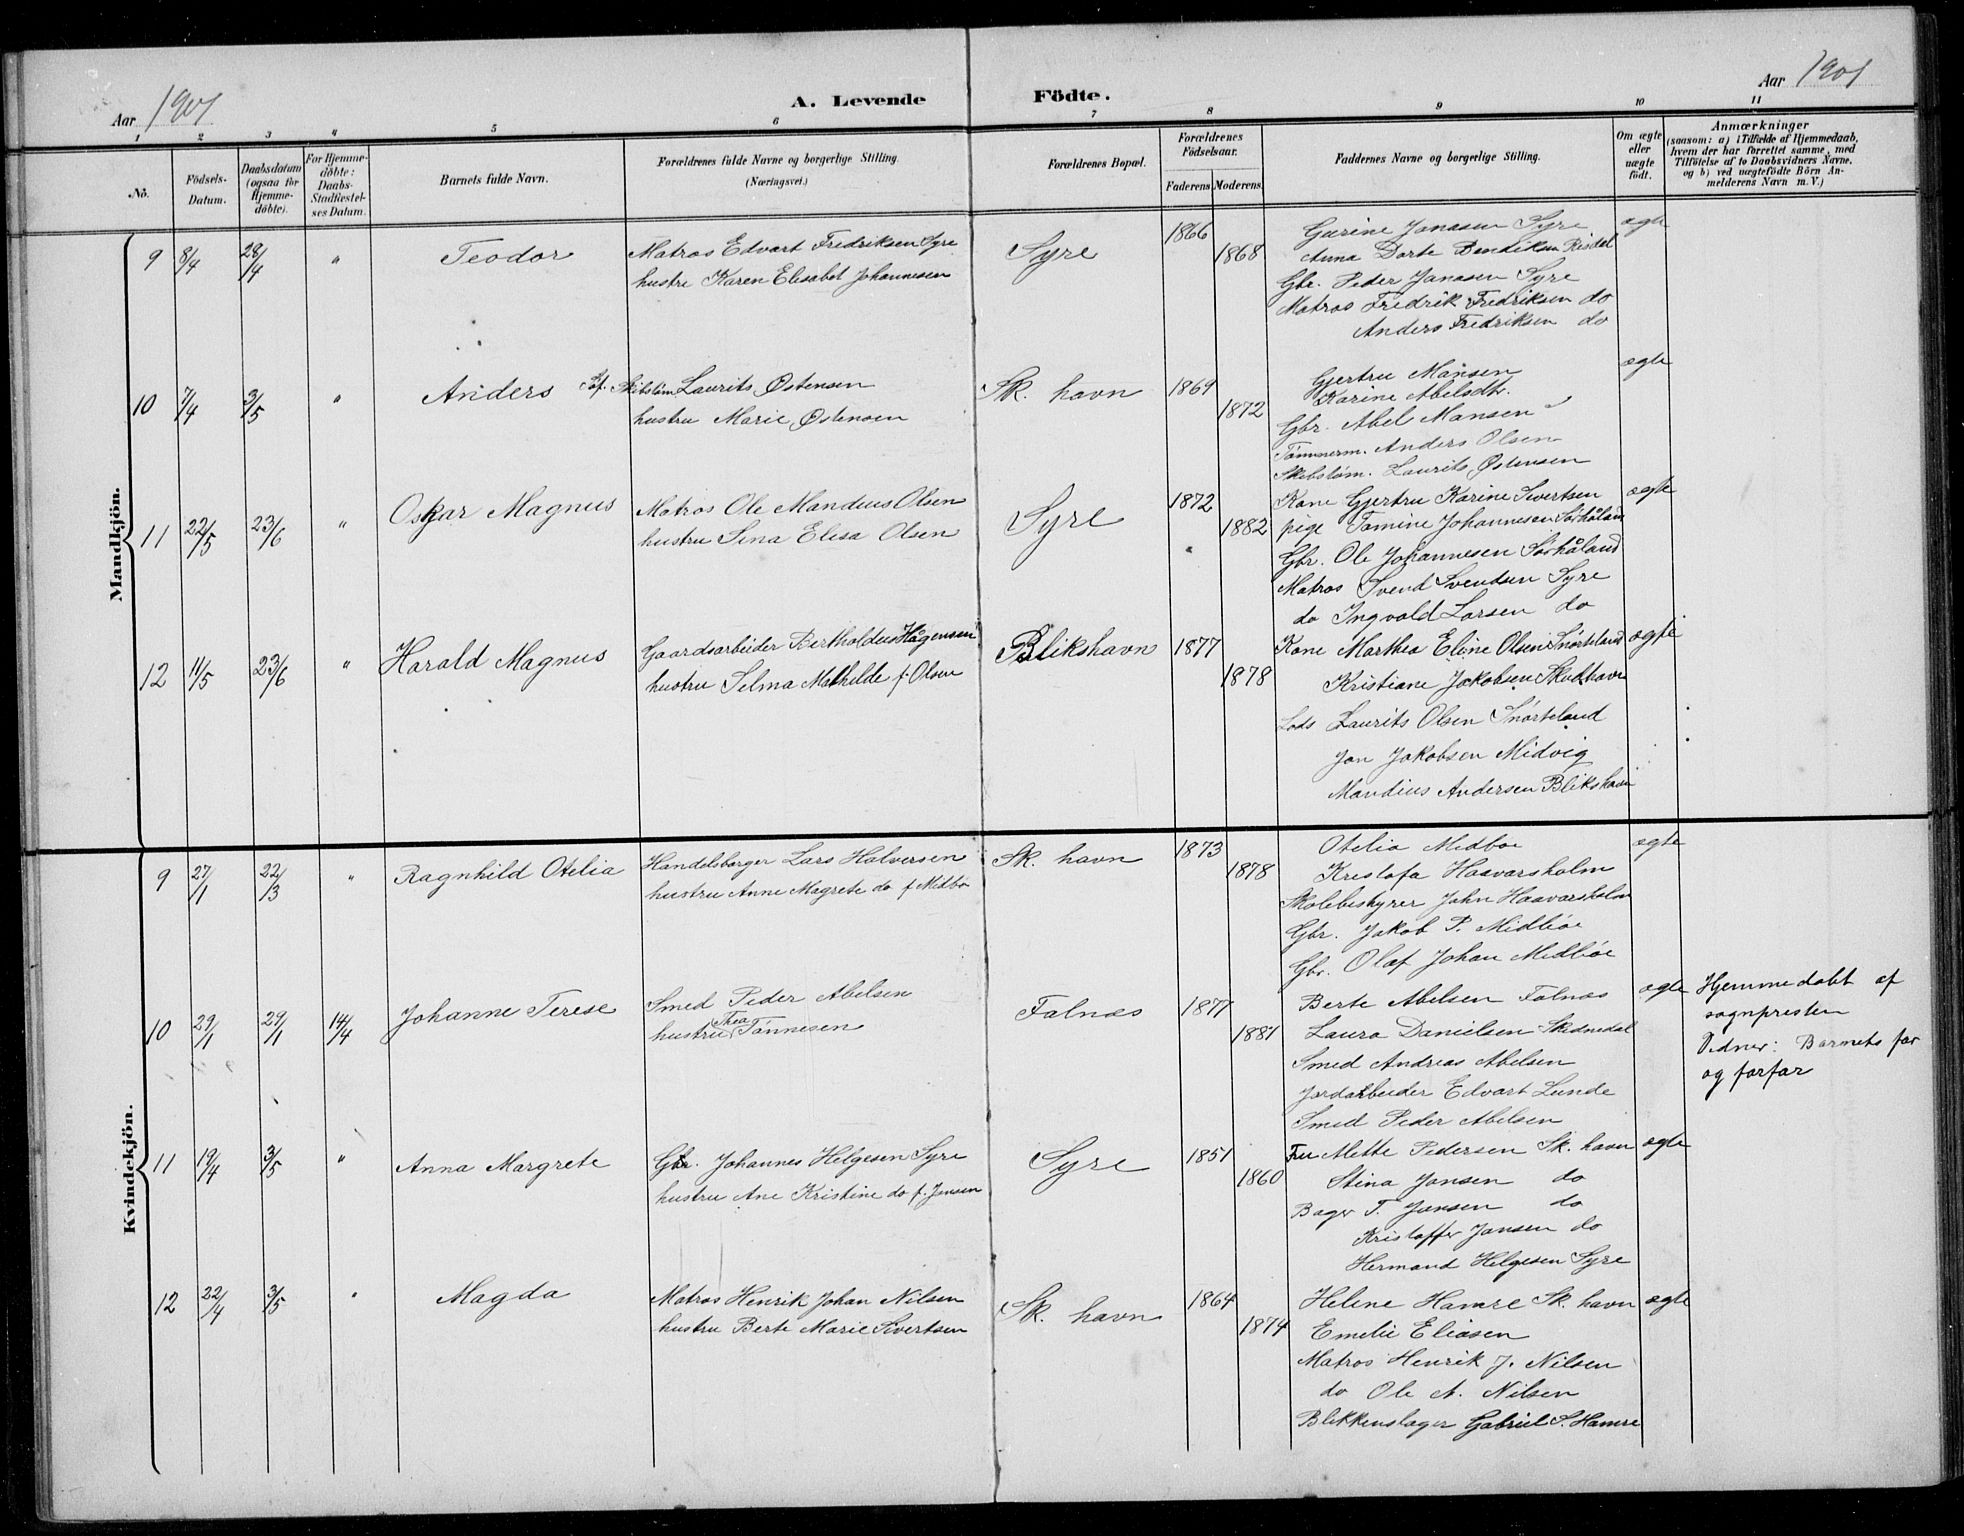 Aar 1901
A. Levende Födte.
Aar 1901
1 2 3 " 5 6 7 8 9 10 11
No.
Födsels-Datum.
Daabsdatum (ogsaa for Hjemme-döbte).
For Hjemme-döbte: Daabs-Stadfæstel-ses Datum.
Barnets fulde Navn.
Forældrenes fulde Navne og borgerlige Stilling.
(Næringsvei.)
Forældrenes Bopæl.
Forældrenes Födselsaar.
Faderens Moderens.
Faddernes Navne og borgerlige Stilling.
Om ægte eller uægte födt.
Anmærkninger
(saasom: a) i Tilfælde af Hjemmedaab, hvem der har forrettet samme, med Tilföielse af to Daabsvidners Navne, og b) ved uægtefödte Börn An-melderens Navn m. V.)
Mandkjön.
9 8/4 28/4 " Teodor
Matros Edvart Fredriksen Syre
hustru Karen Elisabet Johannesen
Syre 1866 1868
Gurine Jonasen Syre
Anna Dorte Bendiksen
Gbr. Peder Jonasen Syre
Matros Fredrik Fredriksen do
Anders Fredriksen do
ægte
10 7/4 3/5 " Anders
Skibstøm. Laurits Østensen
hustru Marie Østensen
Sk. havn 1869 1872
Gjertru Mansen
Karine Abelsdtr.
Gbr. Abel Mansen
Tømmerm. Anders Olsen
Skibstøm. Laurits Østensen
ægte
11 22/5 23/6 " Oskar Magnus
Matros Ole Mandius Olsen
hustru Sina Elisa Olsen
Syre 1872 1882
Kone Gjertru Karine Sivertsen
pige Tomine Johannesen Sørhåland
Gbr. Ole Johannesen Sørhåland
Matros Svend Svendsen Syre
do Ingvald Larsen do
ægte
12 11/5 23/6 " Harald Magnus
Gaardsarbeider Bertholdus Hågensen
hustru Selma Mathilde f. Olsen
Blikshavn 1877 1878
Kone Marthea Eline Olsen Snørteland
Kristiane Jakobsen Skudhavn
Lods Laurits Olsen Snørteland
Jon Jakobsen Midvig
Mandius Andersen Blikshavn
ægte
Kvindekjön.
9 27/1 22/3 " Ragnhild Otelia
Handelsborger Lars Halversen
hustru Anne Magrete do f Midbø
Sk. havn 1873 1878
Otelia Midbøe
Kristofa Haavarsholm
Skolebestyrer John Haavarsholm
Gbr. Jakob P. Midbøe
Gbr. Olaf Johan Midbøe
ægte
10 29/1 29/1 14/4 Johanne Terese
Smed Peder Abelsen
hustru Thea Tønnesen
Falnes 1877 1881
Berte Abelsen Falnes
Laura Danielsen
Smed Andreas Abelsen
Jordarbeider Edvart Lunde
Smed Peder Abelsen
ægte
Hjemmedøbt af
sognpresten
Vidner: Barnets far
og farfar
11 19/4 3/5 " Anna Margrete
Gbr. Johannes Helgesen Syre
hustru Ane Kristine do f. Jensen
Syre 1851 1860
Fru Mette Pedersen Sk. havn
Stina Jansen do
Bager T. Jansen do
Kristoffer Jansen do
Hermand Helgesen Syre
ægte
12 22/4 3/5 " Magda
Matros Henrik Johan Nilsen
hustru Berte Marie Sivertsen
Sk. havn 1864 1874
Helene Hamre Sk. havn
Emelie Eliasen
Matros Henrik J. Nilsen
do Ole A. Nilsen
Blikkenslager Gabriel S. Hamre
ægte